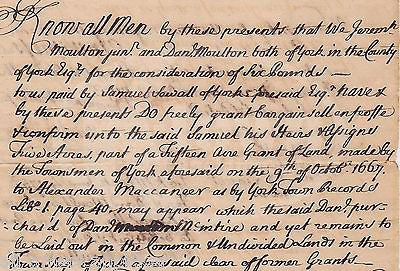 Know all Men by these presents that We Jeremh.
Moulton junr. and Danl. Moulton both of York in the County
of York Esqrs. for the consideration of Six Pounds —
to us paid by Samuel Sewall of York aforesaid Esqr. have &
by these presents DO freely grant bargain sell enfeoffe
& confirm unto the said Samuel his Heirs & Assignes
Five Acres, part of a Fifteen Acre Grant of Land, made by
the Townsmen of York aforesaid on the 9th. of Octobr. 1667.
to Alexander Maccaneer as by York Town Records
Libo. 1. page 40. may appear which the said Danl. pur-
chas'd of Danl. McIntire and yet remains to
be Laid out in the Common & Undivided Lands in the
said clear of former Grants